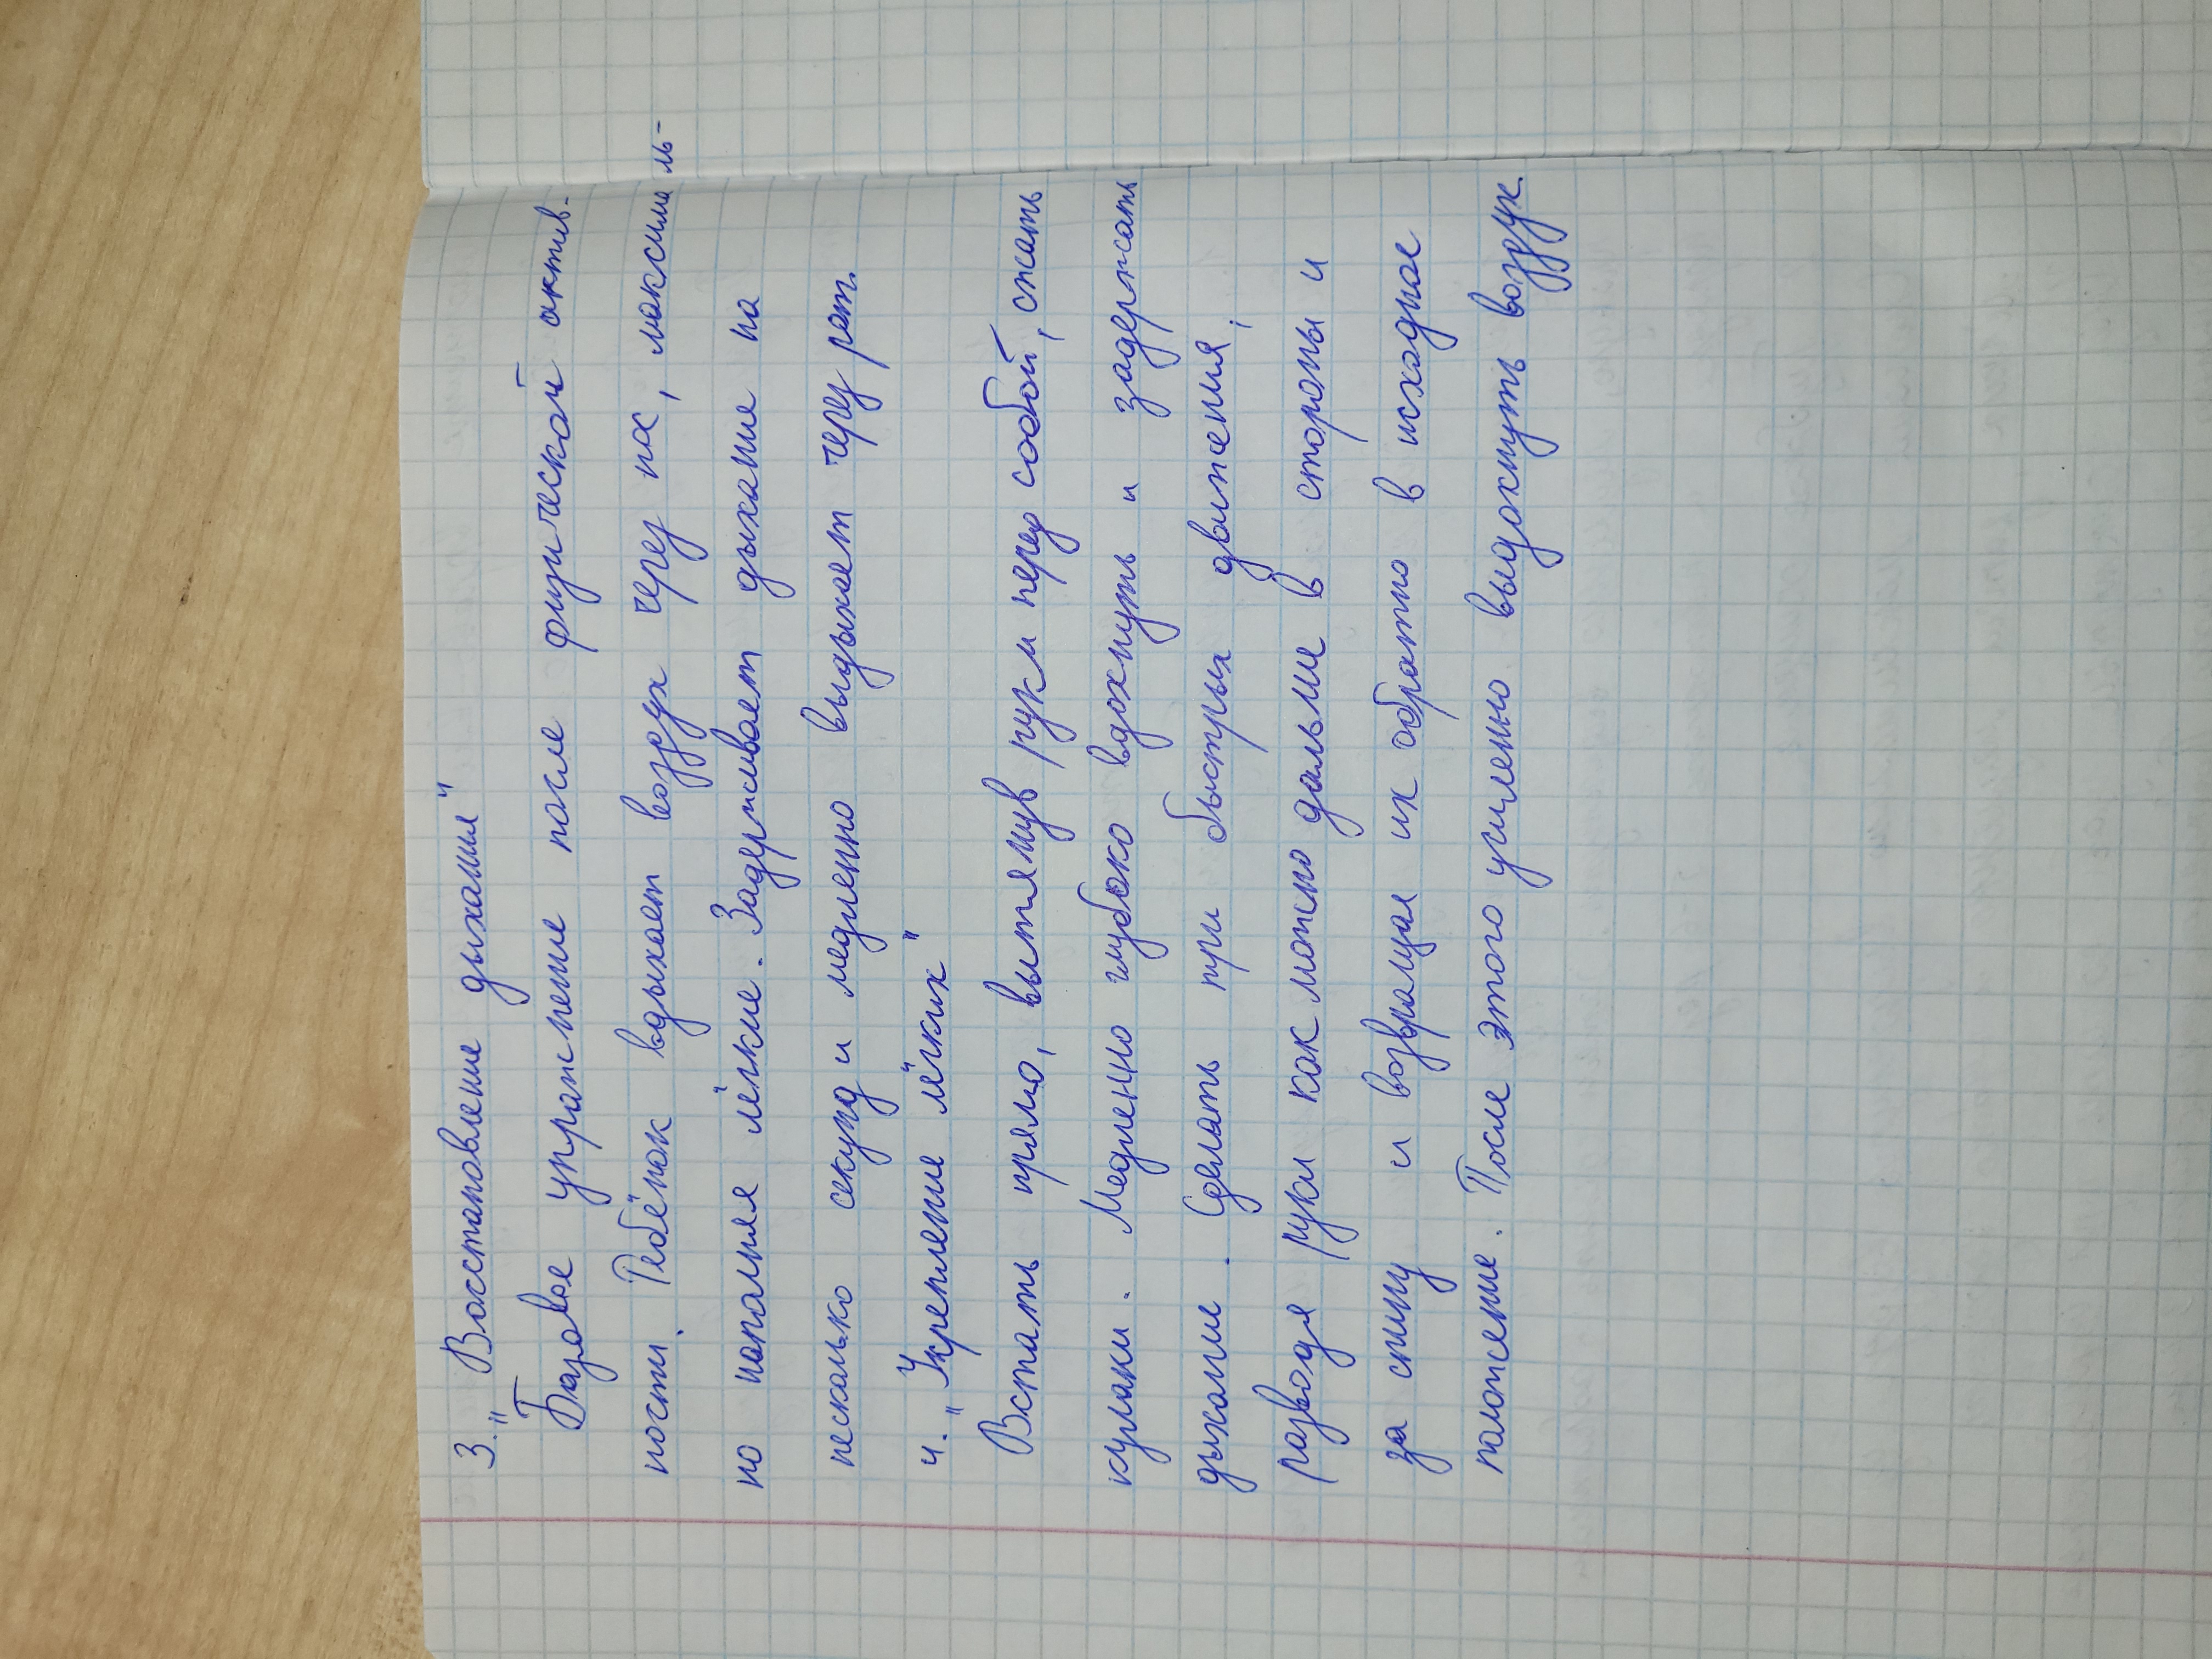 3. "Восстановление дыхания"
Базовое упражнение после физической актив-
ности. Ребёнок вдыхает воздух через нос, максималь-
но наполняя лёгкие. Задерживает дыхание на
несколько секунд и медленно выдыхает через рот.
4. "Укрепление лёгких"
Встать прямо, вытянув руки перед собой, сжать
кулаки. Медленно глубоко вдохнуть и задержать
дыхание. Сделать три быстрых движения,
разводя руки как можно дальше в стороны и
за спину и возвращая их обратно в исходное
положение. После этого усиленно выдохнуть воздух.